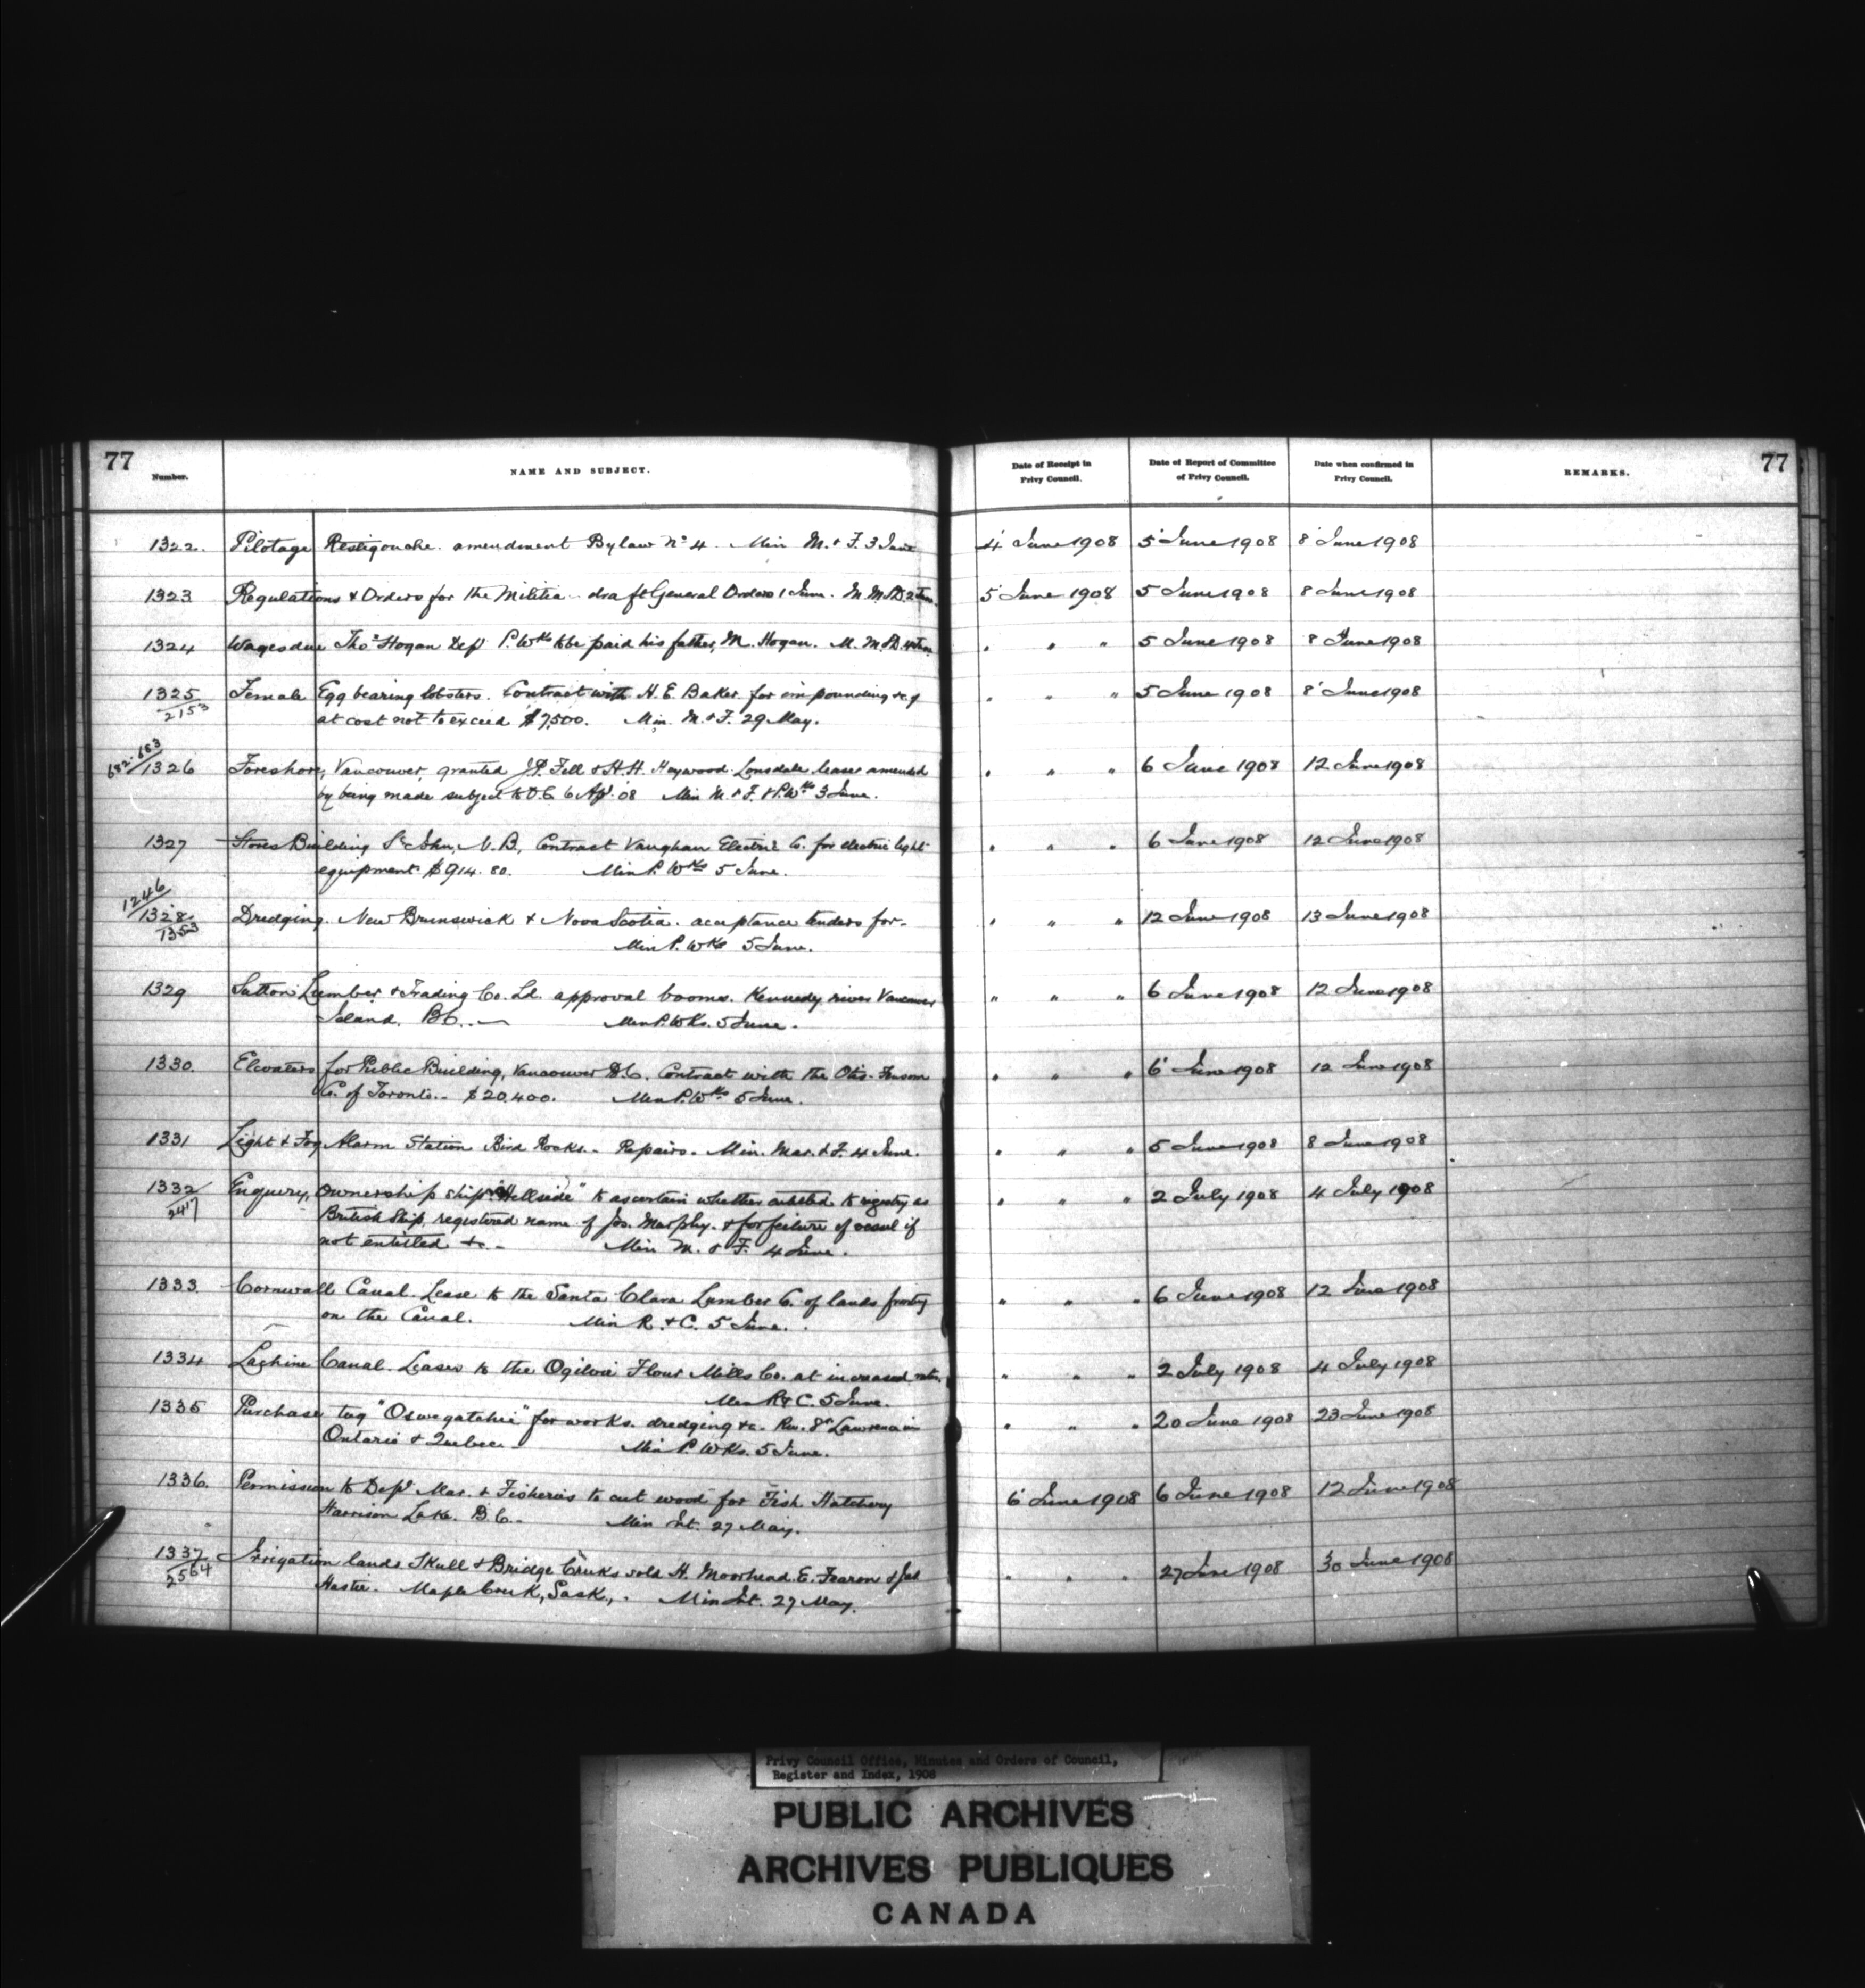 77
Number.
NAME AND SUBJECT.
Date of Receipt in Privy Council.
Date of Report of Committee of Privy Council.
Date when confirmed in Privy Council.
REMARKS.
77
1322. Pilotage Restigouche. amendment Bylaw No 4. Min M. & F. 3 June 4' June 1908 5' June 1908 8' June 1908
1323 Regulations & Orders for the Militia - draft General Orders 1 June. M. M&D. 2 June. 5' June 1908 5 June 1908 8 June 1908
1324 Wages due Thos Hogan Dept P. Wks to be paid his father, M. Hogan. M. M&D. " " " 5 June 1908 8 June 1908
1325 Female Egg bearing lobsters. Contract with H. E. Baker for impounding &c of " " " 5 June 1908 8' June 1908
2153 at cost not to exceed $7,500. Min. M. & F. 29 May.
682-683
1326 Foreshore, Vancouver, granted J.P. Fell & H.H. Heywood Lonsdale leases amended " " " 6 June 1908 12 June 1908
by being made subject to O.C. 6 Apl. 08 Min M. & F. & P. Wks 3 June.
1327 Stores Building St John, N.B., Contract Vaughan Electric Co. for electric light " " " 6 June 1908 12 June 1908
equipment $914.80. Min P. Wks 5 June.
1246
1328 Dredging. New Brunswick & Nova Scotia. acceptance tenders for - " " " 12 June 1908 13 June 1908
1353 Min P. Wks 5 June.
1329 Sutton Lumber & Trading Co. Ld. approval booms. Kennedy river Vancouver " " " 6 June 1908 12 June 1908
Island. B.C. - Min P. Wks. 5 June.
1330. Elevators for Public Building, Vancouver B.C. Contract with the Otis-Fensom " " " 6' June 1908 12 June 1908
Co. of Toronto. - $20,400. Min P. Wks 5 June.
1331 Light & Fog Alarm Station Bird Rocks. - Repairs. Min. Mar. & F. 4 June. " " " 5 June 1908 8 June 1908
1332 Enquiry, Ownership ship "Hillside" to ascertain whether entitled to registry as " " " 2 July 1908 4 July 1908
2417 British Ship, registered name of Jos. Murphy. & forfeiture of vessel if
not entitled &c - Min M. & F. 4 June.
1333. Cornwall Canal. Lease to the Santa Clara Lumber Co. of lands fronting " " " 6 June 1908 12 June 1908
on the Canal. Min R. & C. 5 June.
1334 Lachine Canal. Leases to the Ogilvie Flour Mills Co. at increased rates, " " " 2 July 1908 4 July 1908
Min R & C. 5 June.
1335 Purchase tug "Oswegatchie" for works. dredging &c. Riv. St Lawrence in " " " 20 June 1908 23 June 1908
Ontario & Quebec - Min P. Wks. 5 June.
1336. Permission to Dept Mar. & Fisheries to cut wood for Fish Hatchery 6' June 1908 6 June 1908 12 June 1908
Harrison Lake. B.C. - Min Int. 27 May.
1337 Irrigation lands Skull & Bridge Creeks sold H. Moorhead. E. Fearon & " " " 27 June 1908 30 June 1908
2564 Hastie. Maple Creek, Sask., . Min Int. 27 May.
Privy Council Office, Minutes and Orders of Council,
Register and Index, 1908
PUBLIC ARCHIVES
ARCHIVES PUBLIQUES
CANADA